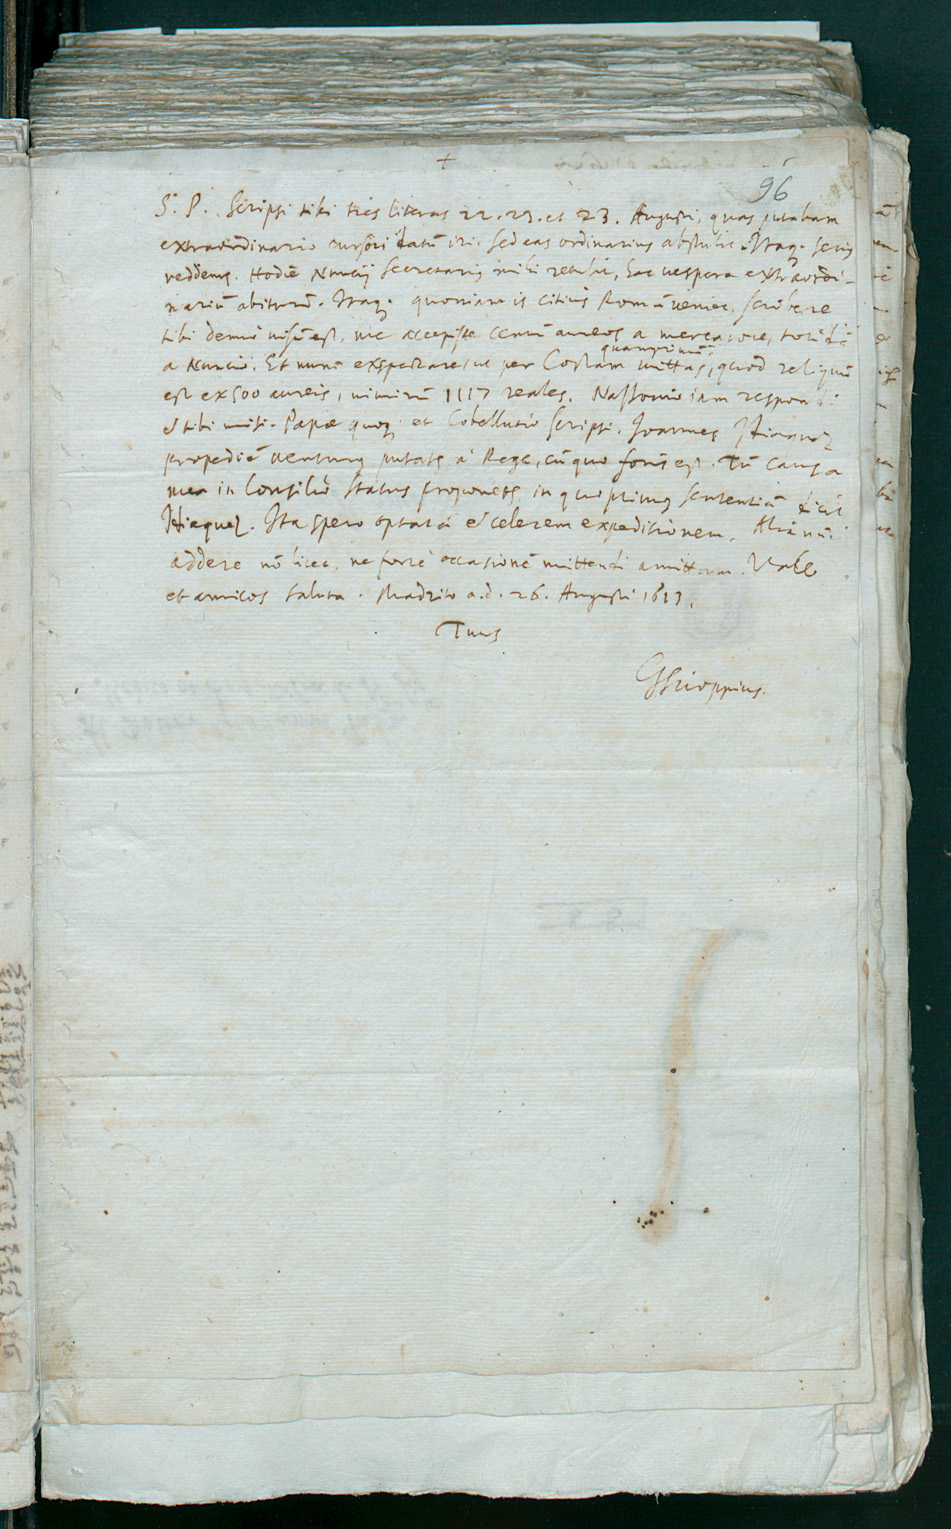 +
96
S. P. Scripsi tibi tres literas 22. 23. et 23. Augusti, quas putabam
extraordinario cursori datū iri. sed eas ordinarius abstulit. Itaq. seriꝰ
reddēt. Hodie Nuncij Secretariꝰ mihi retulit, hac vespera extraordi-
nariū abiturū. Itaq. quoniam is citius Romā veniet, scribere
tibi visū est, me accepisse centū aureos a mercatore, totidē
a Nuncio. Et nunc exspectare, ut per Costam quamprimū mittas, quod reliquū
est ex 500 aureis, nimirum 1117 reales. Nassonio iam respondi
et tibi misi. Papæ quoq. et Cobellutio scripsi. Joannes
propediē venturꝰ putatur à Rege, cū quo foris est. Tū causa
mea in Consilio Status proponetur, in quo primus sententiā dicit
. Ita spero optatā et celerem expeditionem. Aliā nunc
addere nō licet, ne fortè occasionē mittendi amittam. Vale
et amicos saluta. Madrito a.d. 26. Augusti 1613.
Tuus
GScioppius.